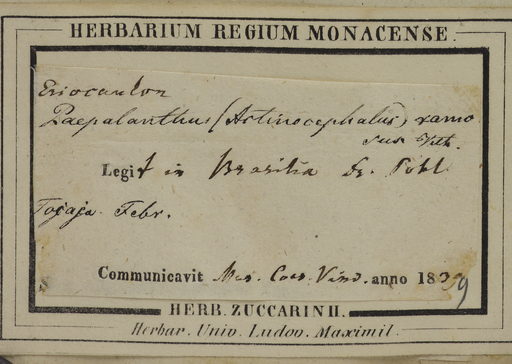 HERBARIUM REGIUM MONACENSE.
Eriocaulon
Paepalanthus (Actinocephalus) ramo
sus Kth.
Legit in Brasilia Dr. Pohl
Febr.
Communicavit Mus. Caes. Vind. anno 1839
HERB. ZUCCARINII.
Herbar. Univ. Ludov. Maximil.